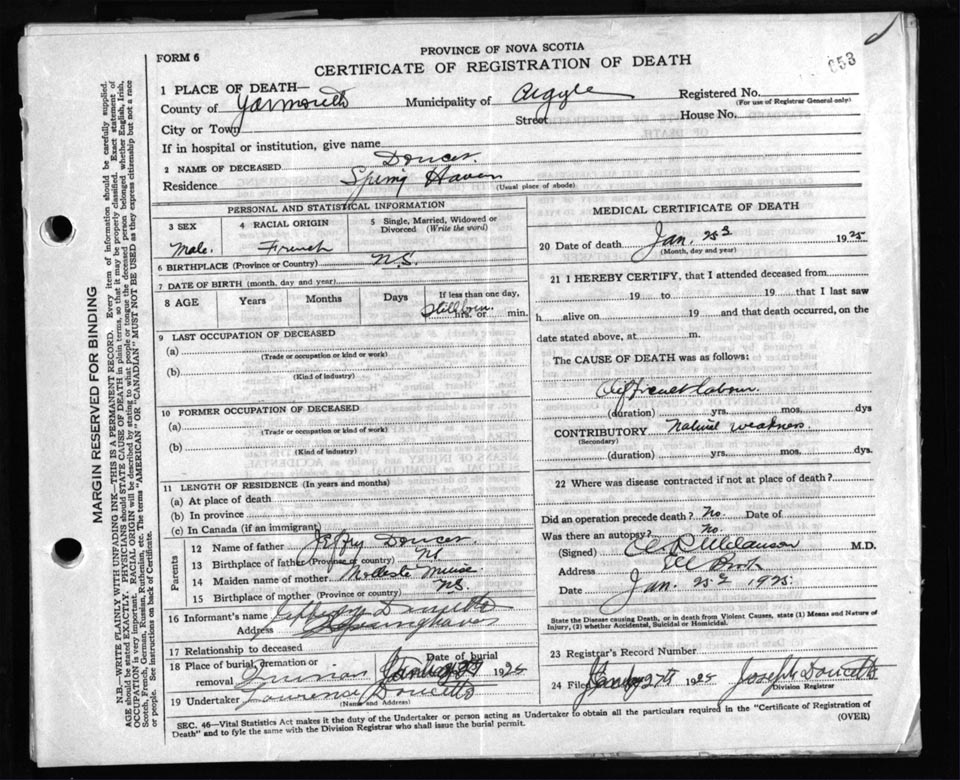 FORM 6
PROVINCE OF NOVA SCOTIA
CERTIFICATE OF REGISTRATION OF DEATH
653
1 PLACE OF DEATH—
County of Yarmouth Municipality of Argyle Registered No.
(For use of Registrar General only)
City or Town Street House No.
If in hospital or institution, give name
2 NAME OF DECEASED Doucet
Residence Spring Haven (Usual place of abode)
PERSONAL AND STATISTICAL INFORMATION
3 SEX Male.
4 RACIAL ORIGIN French
5 Single, Married, Widowed or Divorced (Write the word)
6 BIRTHPLACE (Province or Country) N.S.
7 DATE OF BIRTH (month, day and year)
8 AGE Years Months Days If less than one day, Stillborn hrs. or min.
9 LAST OCCUPATION OF DECEASED
(a)
(Trade or occupation or kind or work)
(b)
(Kind of industry)
10 FORMER OCCUPATION OF DECEASED
(a)
(Trade or occupation or kind or work)
(b)
(Kind of industry)
11 LENGTH OF RESIDENCE (In years and months)
(a) At place of death
(b) In province
(c) In Canada (if an immigrant)
Parents
12 Name of father Jeffry Doucet
13 Birthplace of father (Province or country) NS
14 Maiden name of mother Modeste Muise
15 Birthplace of mother (Province or country) NS.
16 Informant's name Jeffrey Doucette
Address Springhaven
17 Relationship to deceased
18 Place of burial, cremation or removal Date of burial 1925
19 Undertaker Lawrence Doucette
(Name and Address)
MEDICAL CERTIFICATE OF DEATH
20 Date of death Jan. 1925
(Month, day and year)
21 I HEREBY CERTIFY, that I attended deceased from
19 to 19 that I last saw
h alive on 19 and that death occurred, on the
date stated above, at m.
The CAUSE OF DEATH was as follows:
Difficult labour
(duration) yrs. mos. dys
CONTRIBUTORY Natural weakness.
(Secondary)
(duration) yrs. mos. dys.
22 Where was disease contracted if not at place of death?
Did an operation precede death? No. Date of
Was there an autopsy? No.
(Signed) M.D.
Address
Date Jan. 1925
State the Disease causing Death, or in death from Violent Causes, state (1) Means and Nature of Injury, (2) whether Accidental, Suicidal or Homicidal.
23 Registrar's Record Number
24 Filed 27th 1925 Joseph Doucette
Division Registrar
SEC. 46—Vital Statistics Act makes it the duty of the Undertaker or person acting as Undertaker to obtain all the particulars required in the "Certificate of Registration of
Death" and to fyle the same with the Division Registrar who shall issue the burial permit. (OVER)
MARGIN RESERVED FOR BINDING
N.B.—WRITE PLAINLY WITH UNFADING INK—THIS IS A PERMANENT RECORD. Every item of information should be carefully supplied.
AGE should be stated EXACTLY. PHYSICIANS should STATE CAUSE OF DEATH in plain terms, so that it may be properly classified. Exact statement of
OCCUPATION is very important. RACIAL ORIGIN will be described by stating to what people or tongue the deceased person belonged whether English, Irish,
Scotch, French, German, Russian, Ruthenian, etc. The terms "AMERICAN" OR "CANADIAN" MUST NOT BE USED as they express citizenship but not a race
or people. See instructions on back of Certificate.